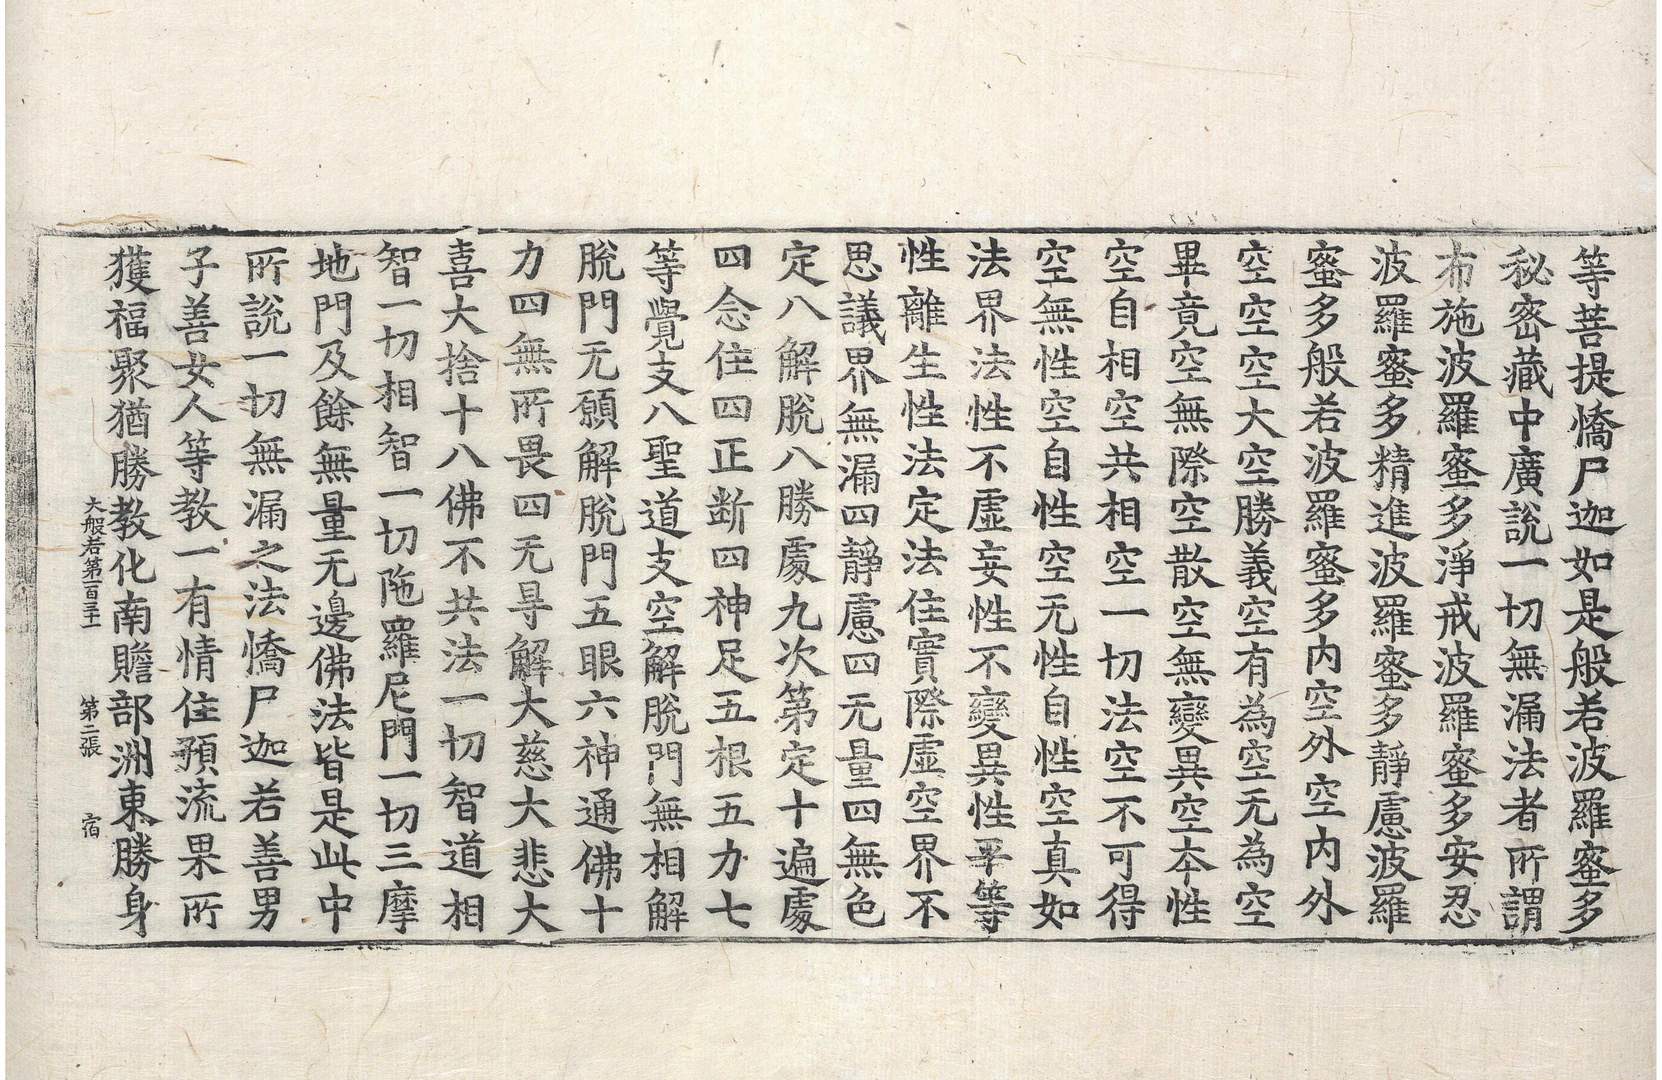 等菩提憍尸迦如是般若波羅蜜多
秘密藏中廣說一切無漏法者所謂
布施波羅蜜多淨戒波羅蜜多安忍
波羅蜜多精進波羅蜜多靜慮波羅
蜜多般若波羅蜜多內空外空內外
空空空大空勝義空有為空无為空
畢竟空無際空散空無變異空本性
空自相空共相空一切法空不可得
空無性空自性空无性自性空真如
法界法性不虛妄性不變異性平等
性離生性法定法住實際虛空界不
思議界無漏四靜慮四无量四無色
定八解脫八勝處九次第定十遍處
四念住四正断四神足五根五力七
等覺支八聖道支空解脫門無相解
脫門无願解脫門五眼六神通佛十
力四無所畏四无㝵解大慈大悲大
喜大捨十八佛不共法一切智道相
智一切相智一切陁羅尼門一切三摩
地門及餘無量无邊佛法皆是此中
所說一切無漏之法憍尸迦若善男
子善女人等教一有情住預流果所
獲福聚猶勝教化南贍部洲東勝身
大般若第一百三十一 第二張 宿